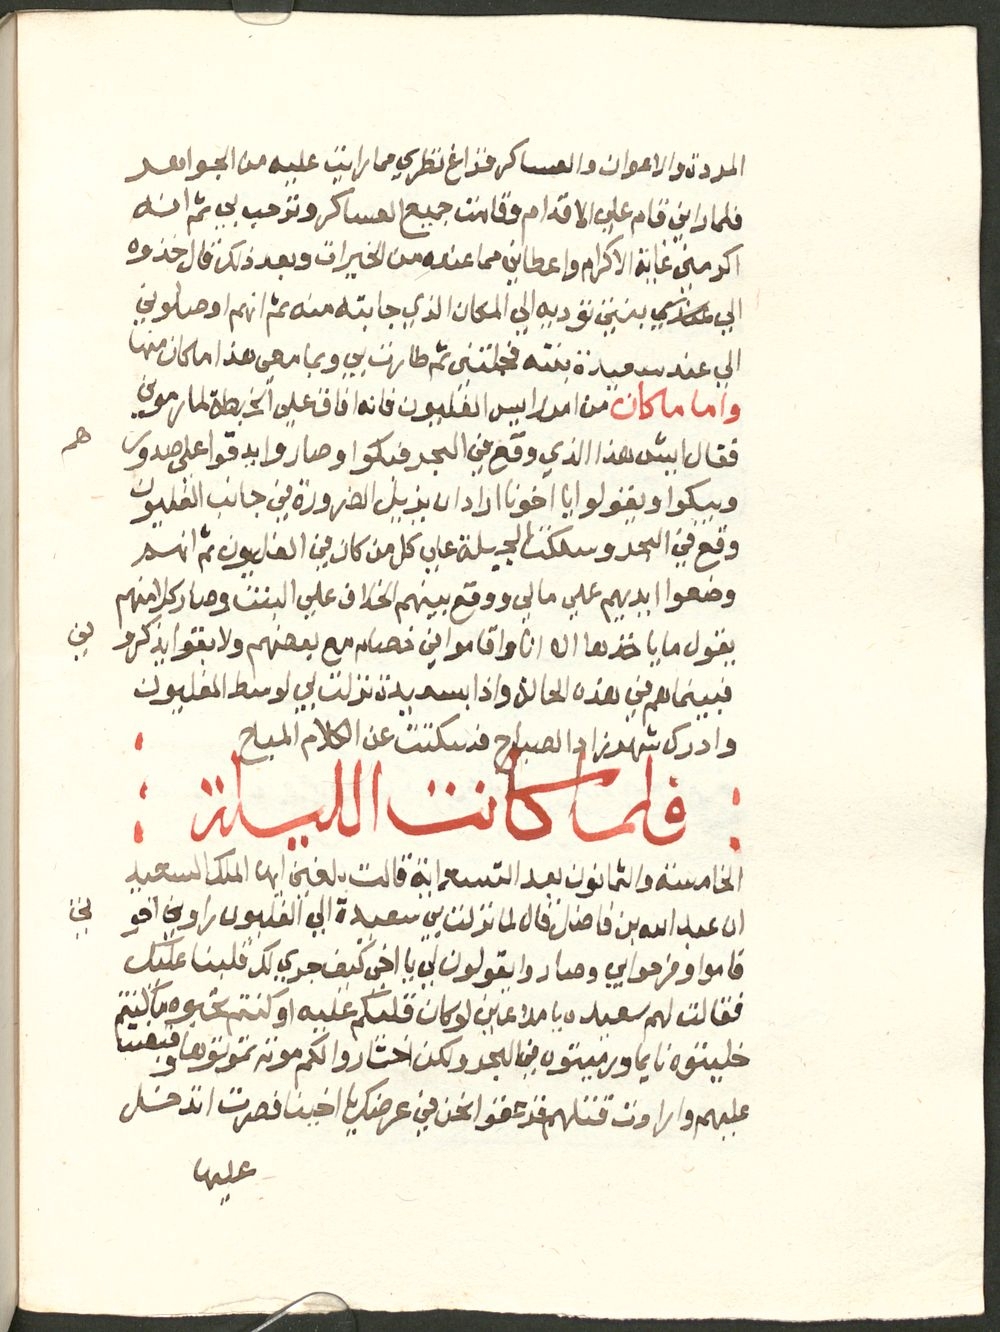 المردة والاعوان والعساكر فزاغ نظري مما رايت عليه من الجوامعه
فلما راني قام علي الاقدام وقامت جميع العساكر وترحب بي ثم انه
اكرمني غاية الاكرام واعطاني مما عنده من الخيرات وبعد ذلك قال خذوه
الي بنتي توديه الي المكان الذي جابته منه ثم انهم اوصلوني
الي عند سعيدة بنته فحملتني ثم طارت بي وبما معي هذا ماكان منها
واما ماكان من امر رايس الغليون فانه افاق علي الخبطة لما رموني
فقال ايش هذا الذي وقع في البحر فبكوا وصاروا يدقوا علي صدور
هم
ويبكوا ويقولوا يا اخونا اراد ان يزيل الضرورة في جانب الغليون
وقع في البحر وسلكت الحيلة علي كل من كان في الغليون ثم انهم
وضعوا ايديهم علي مالي ووقع بينهم الخلاف علي البنت وصار كلا منهم
يقول ما ياخذها الا انا واقاموا في خصام مع بعضهم ولا بقوا يذكرو
ني
فبينما هم في هذه الحالة واذا بسعيدة نزلت بي لوسط الغليون
وادرك شهرزاد الصباح فسكتت عن الكلام المباح
فلما كانت الليلة
الخامسة والثمانون بعد التسعماية قالت بلغني ايها الملك السعيد
ان عبد الله بن فاضل قال لما نزلت بي سعيدة الي الغليون راوني اخو
تي
قاموا وفرحوا بي وصاروا يقولون لي يا اخي كيف جري لك قلبنا عليك
فقالت لهم سعيده يا ملاعين لو كان قلبكم عليه او كنتم تحبوه ما كنتم
خليتوه نايم ورميتوه في البحر ولكن اختاروا لكم موته تموتوها وقبضت
عليهم وارادت قتلهم فزعقوا نحن في عرضك يا اخينا فصرت اتدخل
عليها